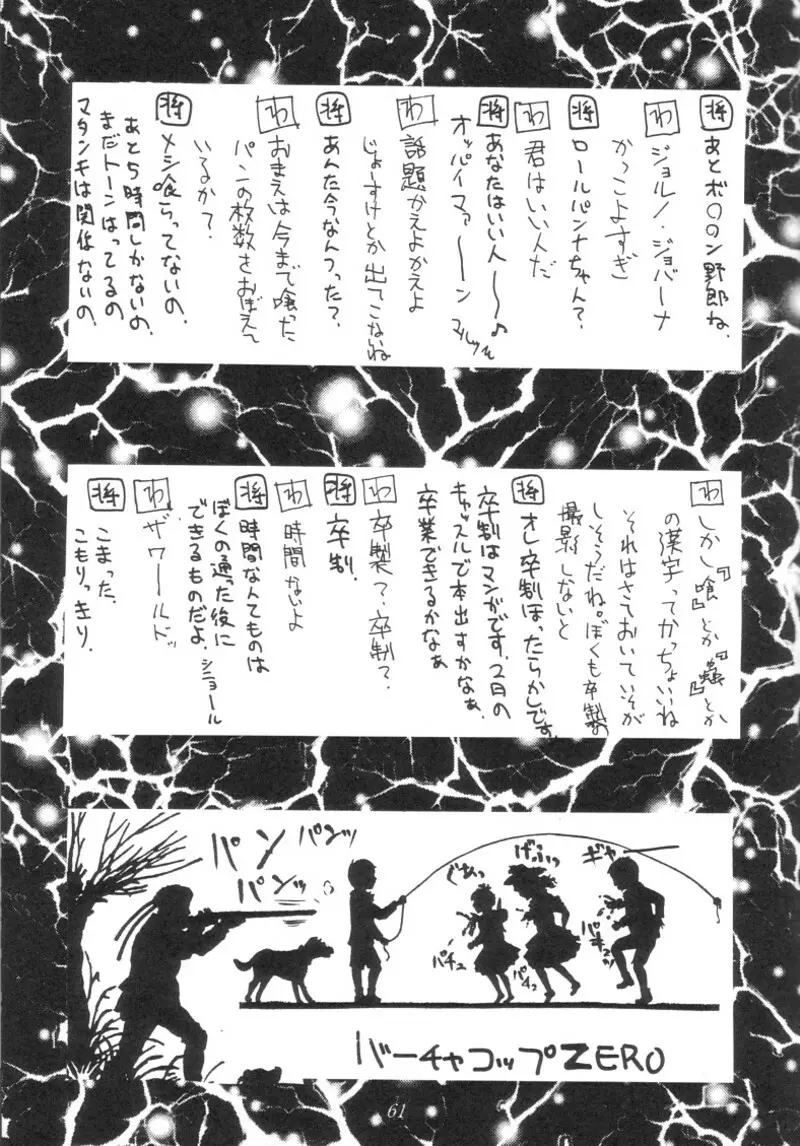 将 あとボ○○ン野郎ね.
わ ジョルノ・ジョバーナ
かっこよすぎ
将 ロールパンナちゃん?
わ 君はいい人だ
将 あなたはいい人〜〜♪
オッパイマァ〜〜ン
わ 話題かえよかえよ
じょーすけとか出てこないね
将 あんた今なんつった?
わ おまえは今まで喰った
パンの枚数をおぼえて
いるか?
将 メシ喰らってないの.
あと5時間しかないの.
まだトーンはってるの
マタンキは関係ないの.
わ しかし『喰』とか『蟲』とか
の漢字ってかっちょいいね
それはさておいていそが
しそうだね。ぼくも卒製の
撮影しないと
将 オレ卒制ほったらかしです.
卒制はマンガです. 2日の
キャッスルで本出すかなぁ.
卒業できるかなぁ
わ 卒製?.卒制?.
将 卒制.
わ 時間ないよ
将 時間なんてものは
ぼくの通った後に
できるものだよ. ショール
わ ザワールドッ
将 こまった.
こもりっきり.
パン
パンッ
パンッ
ぐあっ
げふっ
ギャー
パチュ
パチュ
パチュッ
バーチャコップZERO
61